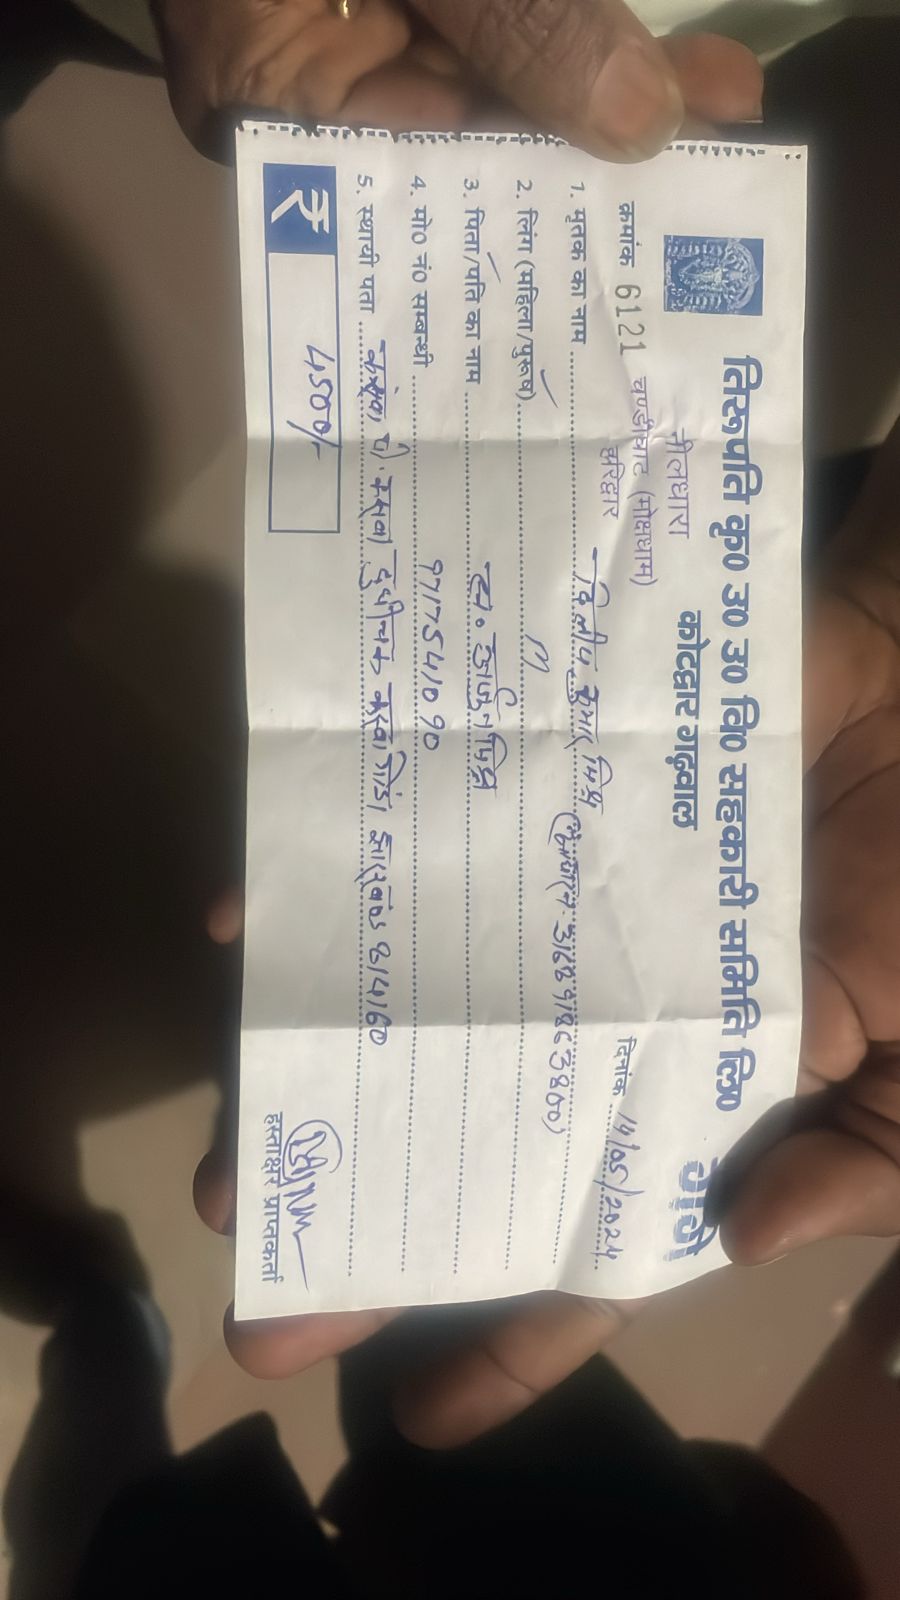 तिरूपति कृ0 उ0 उ0 वि0 सहकारी समिति लि0
कोटद्वार गढ़वाल
नीलधारा
चण्डीघाट (मोक्षधाम)
हरिद्वार
क्रमांक 6121
दिनांक 14/05/2024
1. मृतक का नाम दिलीप कुमार मिश्र
(आधार न. 316891863800)
2. लिंग (महिला/पुरूष) M
3. पिता/पति का नाम स्व. अर्जुन मिश्र
4. मो0 नं0 सम्बन्धी 9717541090
5. स्थायी पता पो. कसवा झारखण्ड 814160
₹ 4500/-
हस्ताक्षर प्राप्तकर्ता